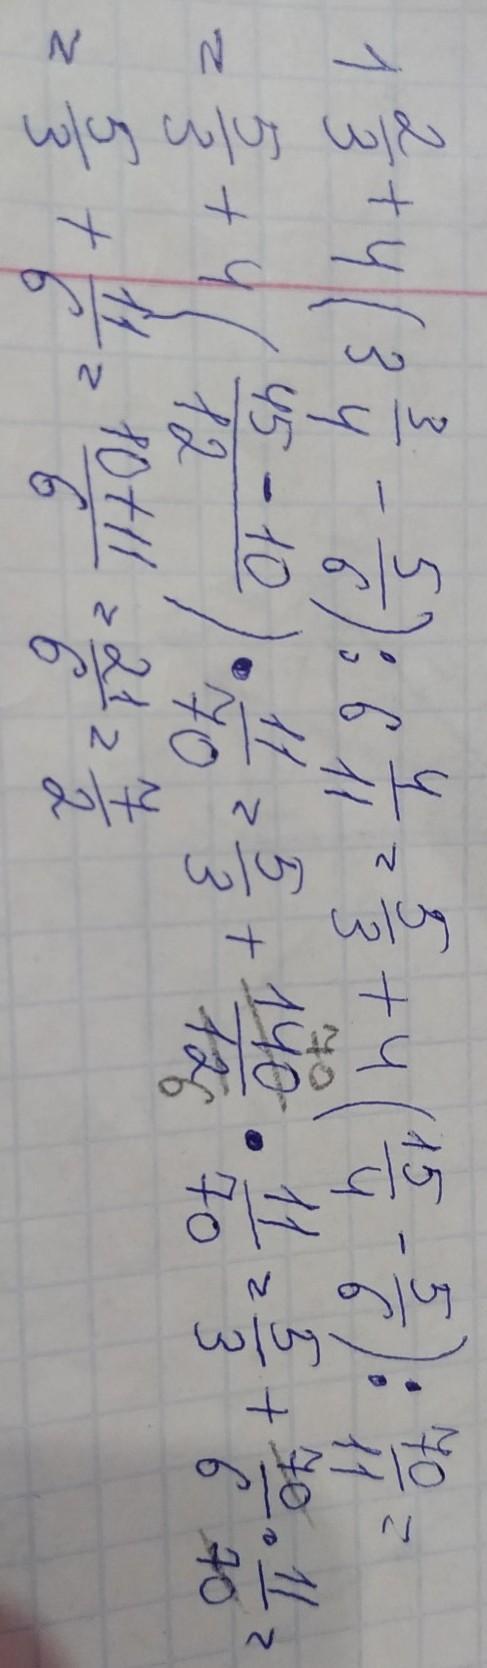 1 2/3 + 4 (3 3/4 - 5/6) : 6 4/11 = 5/3 + 4 (15/4 - 5/6) : 70/11 =
= 5/3 + 4 (45 - 10/12) · 11/70 = 5/3 + 140/12 70 6 · 11/70 = 5/3 + 70/6 · 11/70 =
= 5/3 + 11/6 = 10+11/6 = 21/6 = 7/2